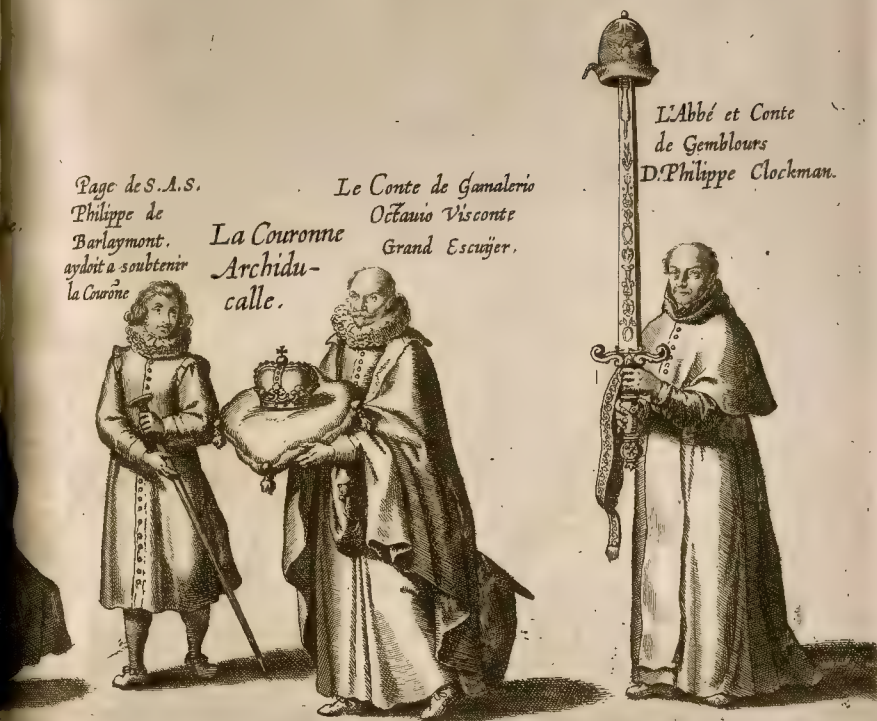 Page de S.A.S.
Philippe de
Barlaymont.
aydoit a soubtenir
la Courōne
La Couronne
Archidu-
calle.
Le Conte de Gamalerio
Octauio Visconte
Grand Escuijer.
L'Abbé et Conte
de Gemblours
D. Philippe Clockman.